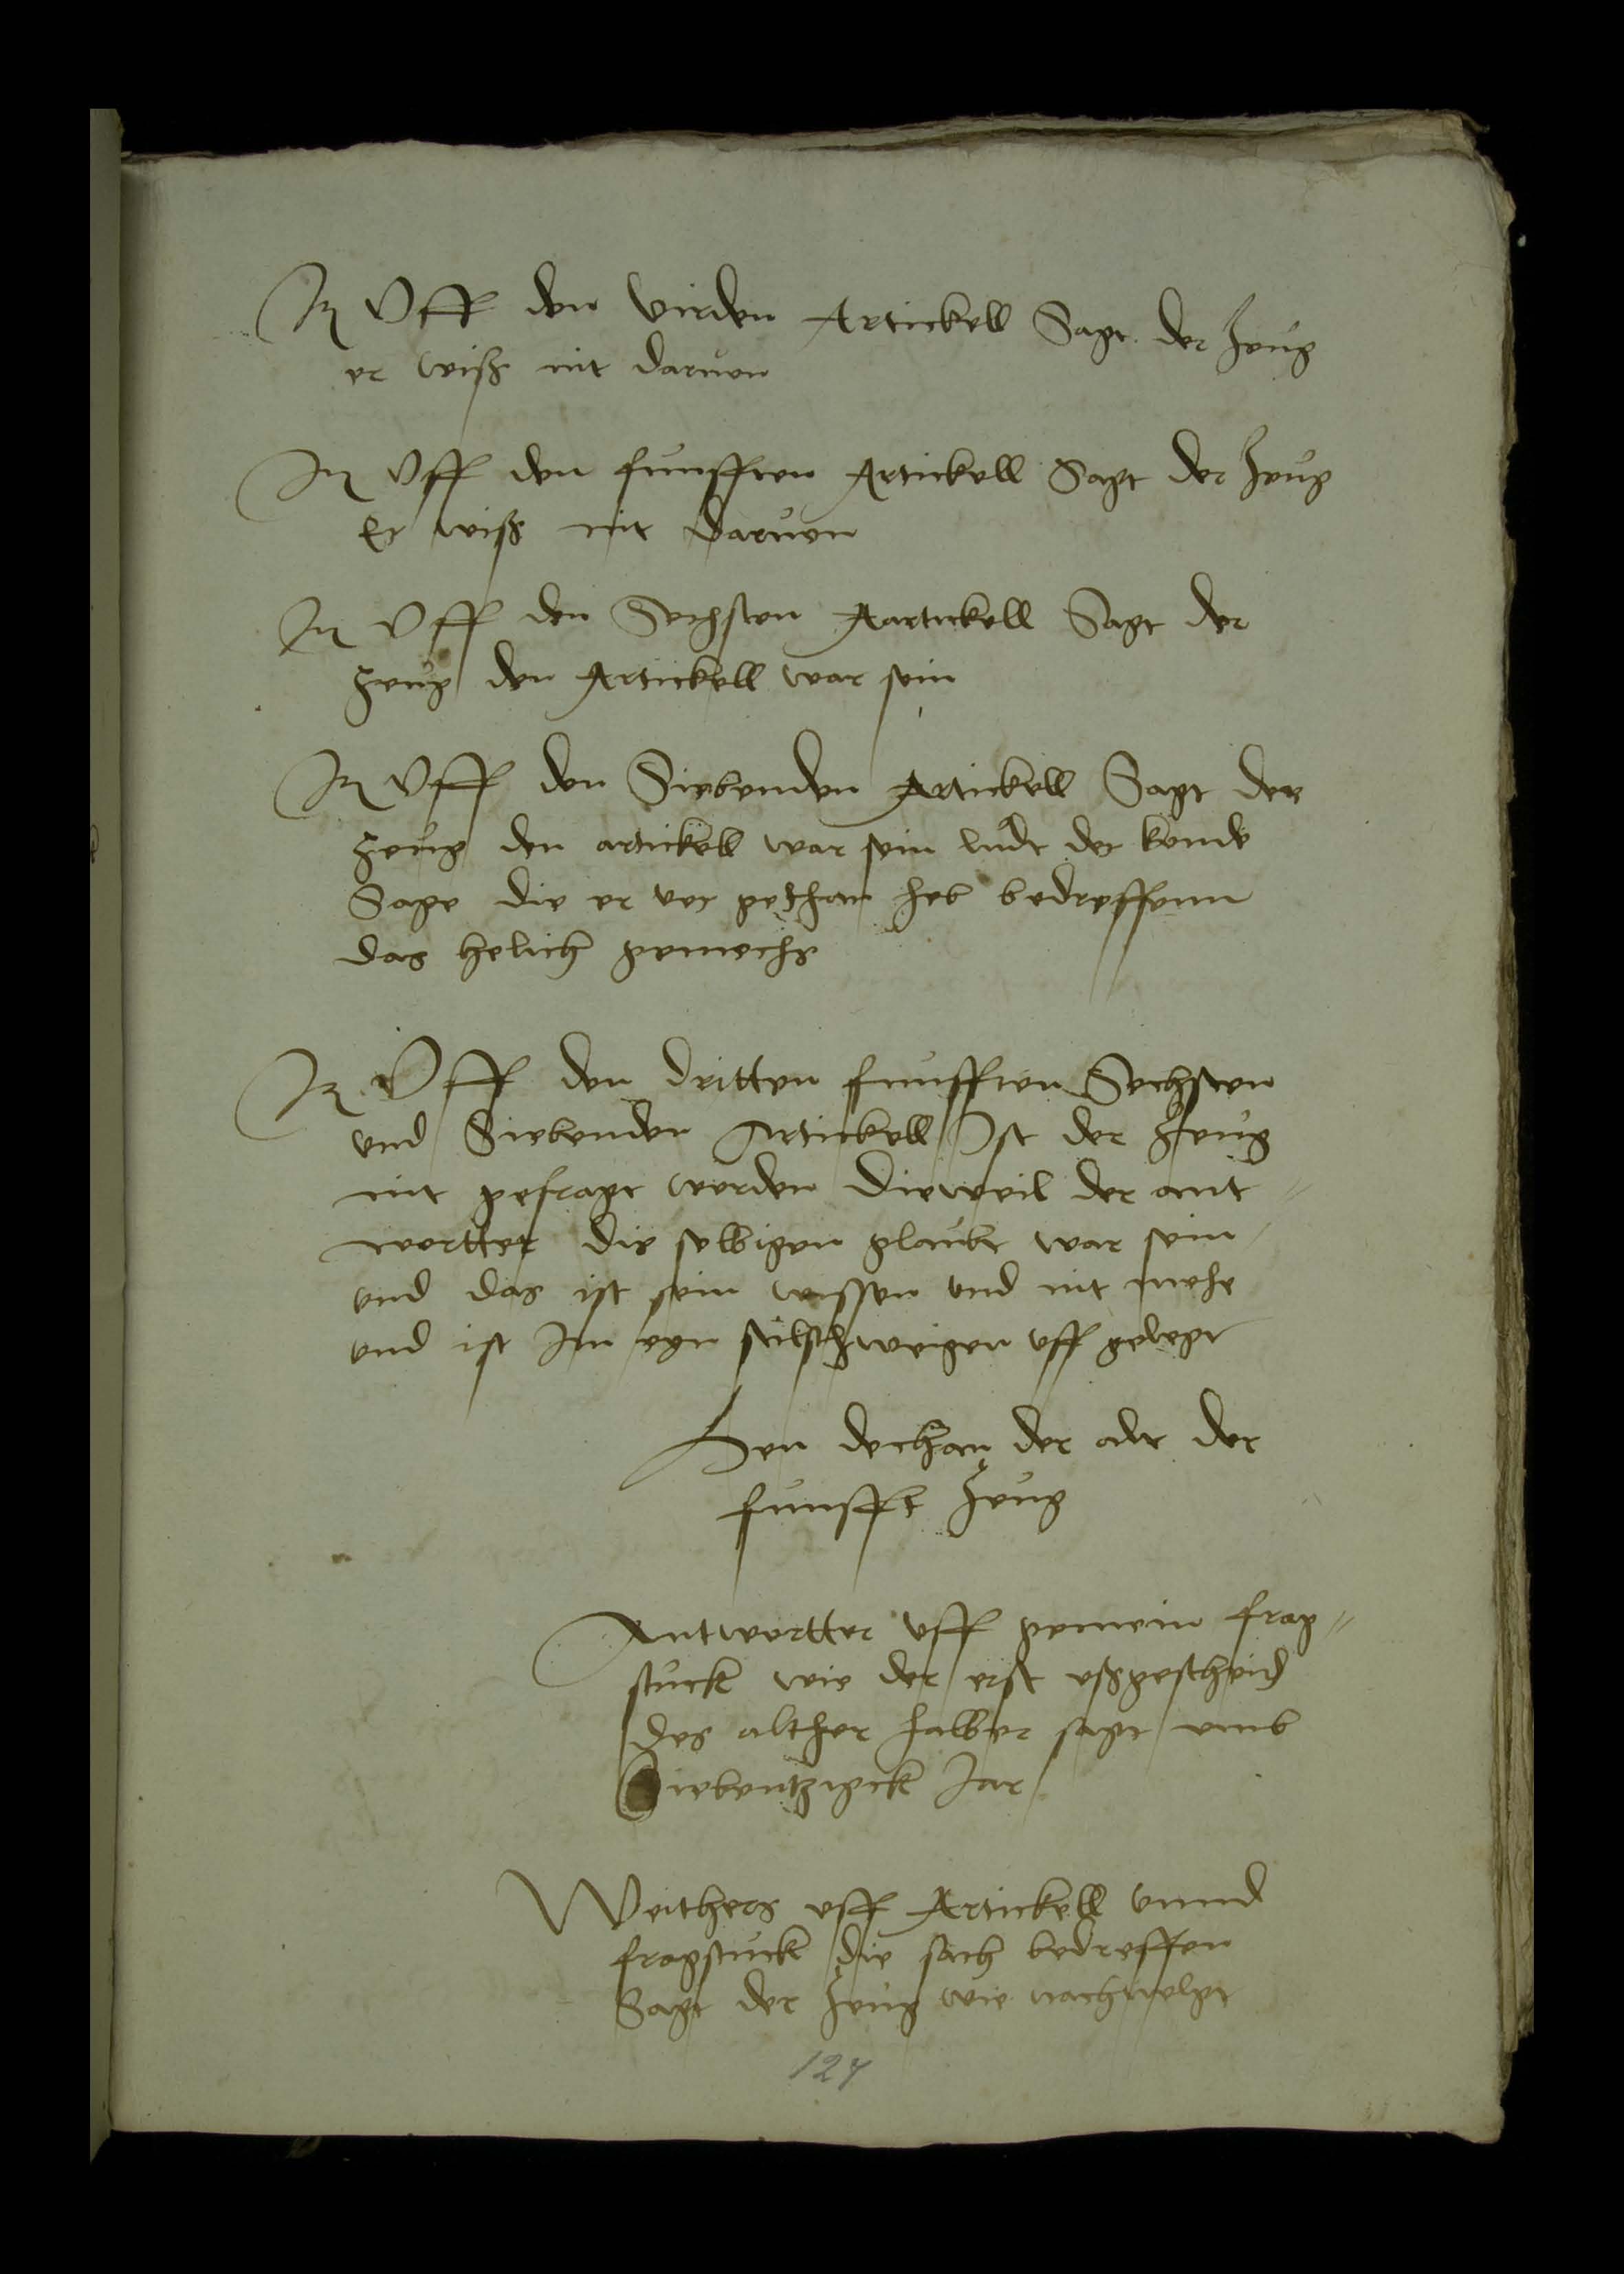 It Uff den virden Artickell Sagt der Zeug
er wiß nit daruon
It Uff den funfften Artickell Sagt der Zeug
Er wiß nit daruon
It Uff den Sechsten Aartickell Sagt der
Zeug den Artickell war sein
It Uff den Siebenden Artickell Sagt der
Zeug den artickell war sein ludt der konde
Sage die er vor gethan heb bedreffenn
das helich gemechs
It Uff den dritten funfften Sechsten
vnd Siebenden Artickell Ist der Zeug
nit gefragt worden Dieweil der ant
wortter die selbigen glaubt war sein
vnd das ist sein wissen vnd nit mehe
vnd ist Im eyn stilschweigen vff gelegt
Hen dechan der alt der
funfft Zeug
Antwortter vff gemein frag=
stuck wie der erst vßgescheid
des alther halber sagt vmb
Siebentzigck Jar
Weithers vff Artickell vnnd
fragstuck die sach bedreffen
Sagt der Zeug wie nachuolgt
124